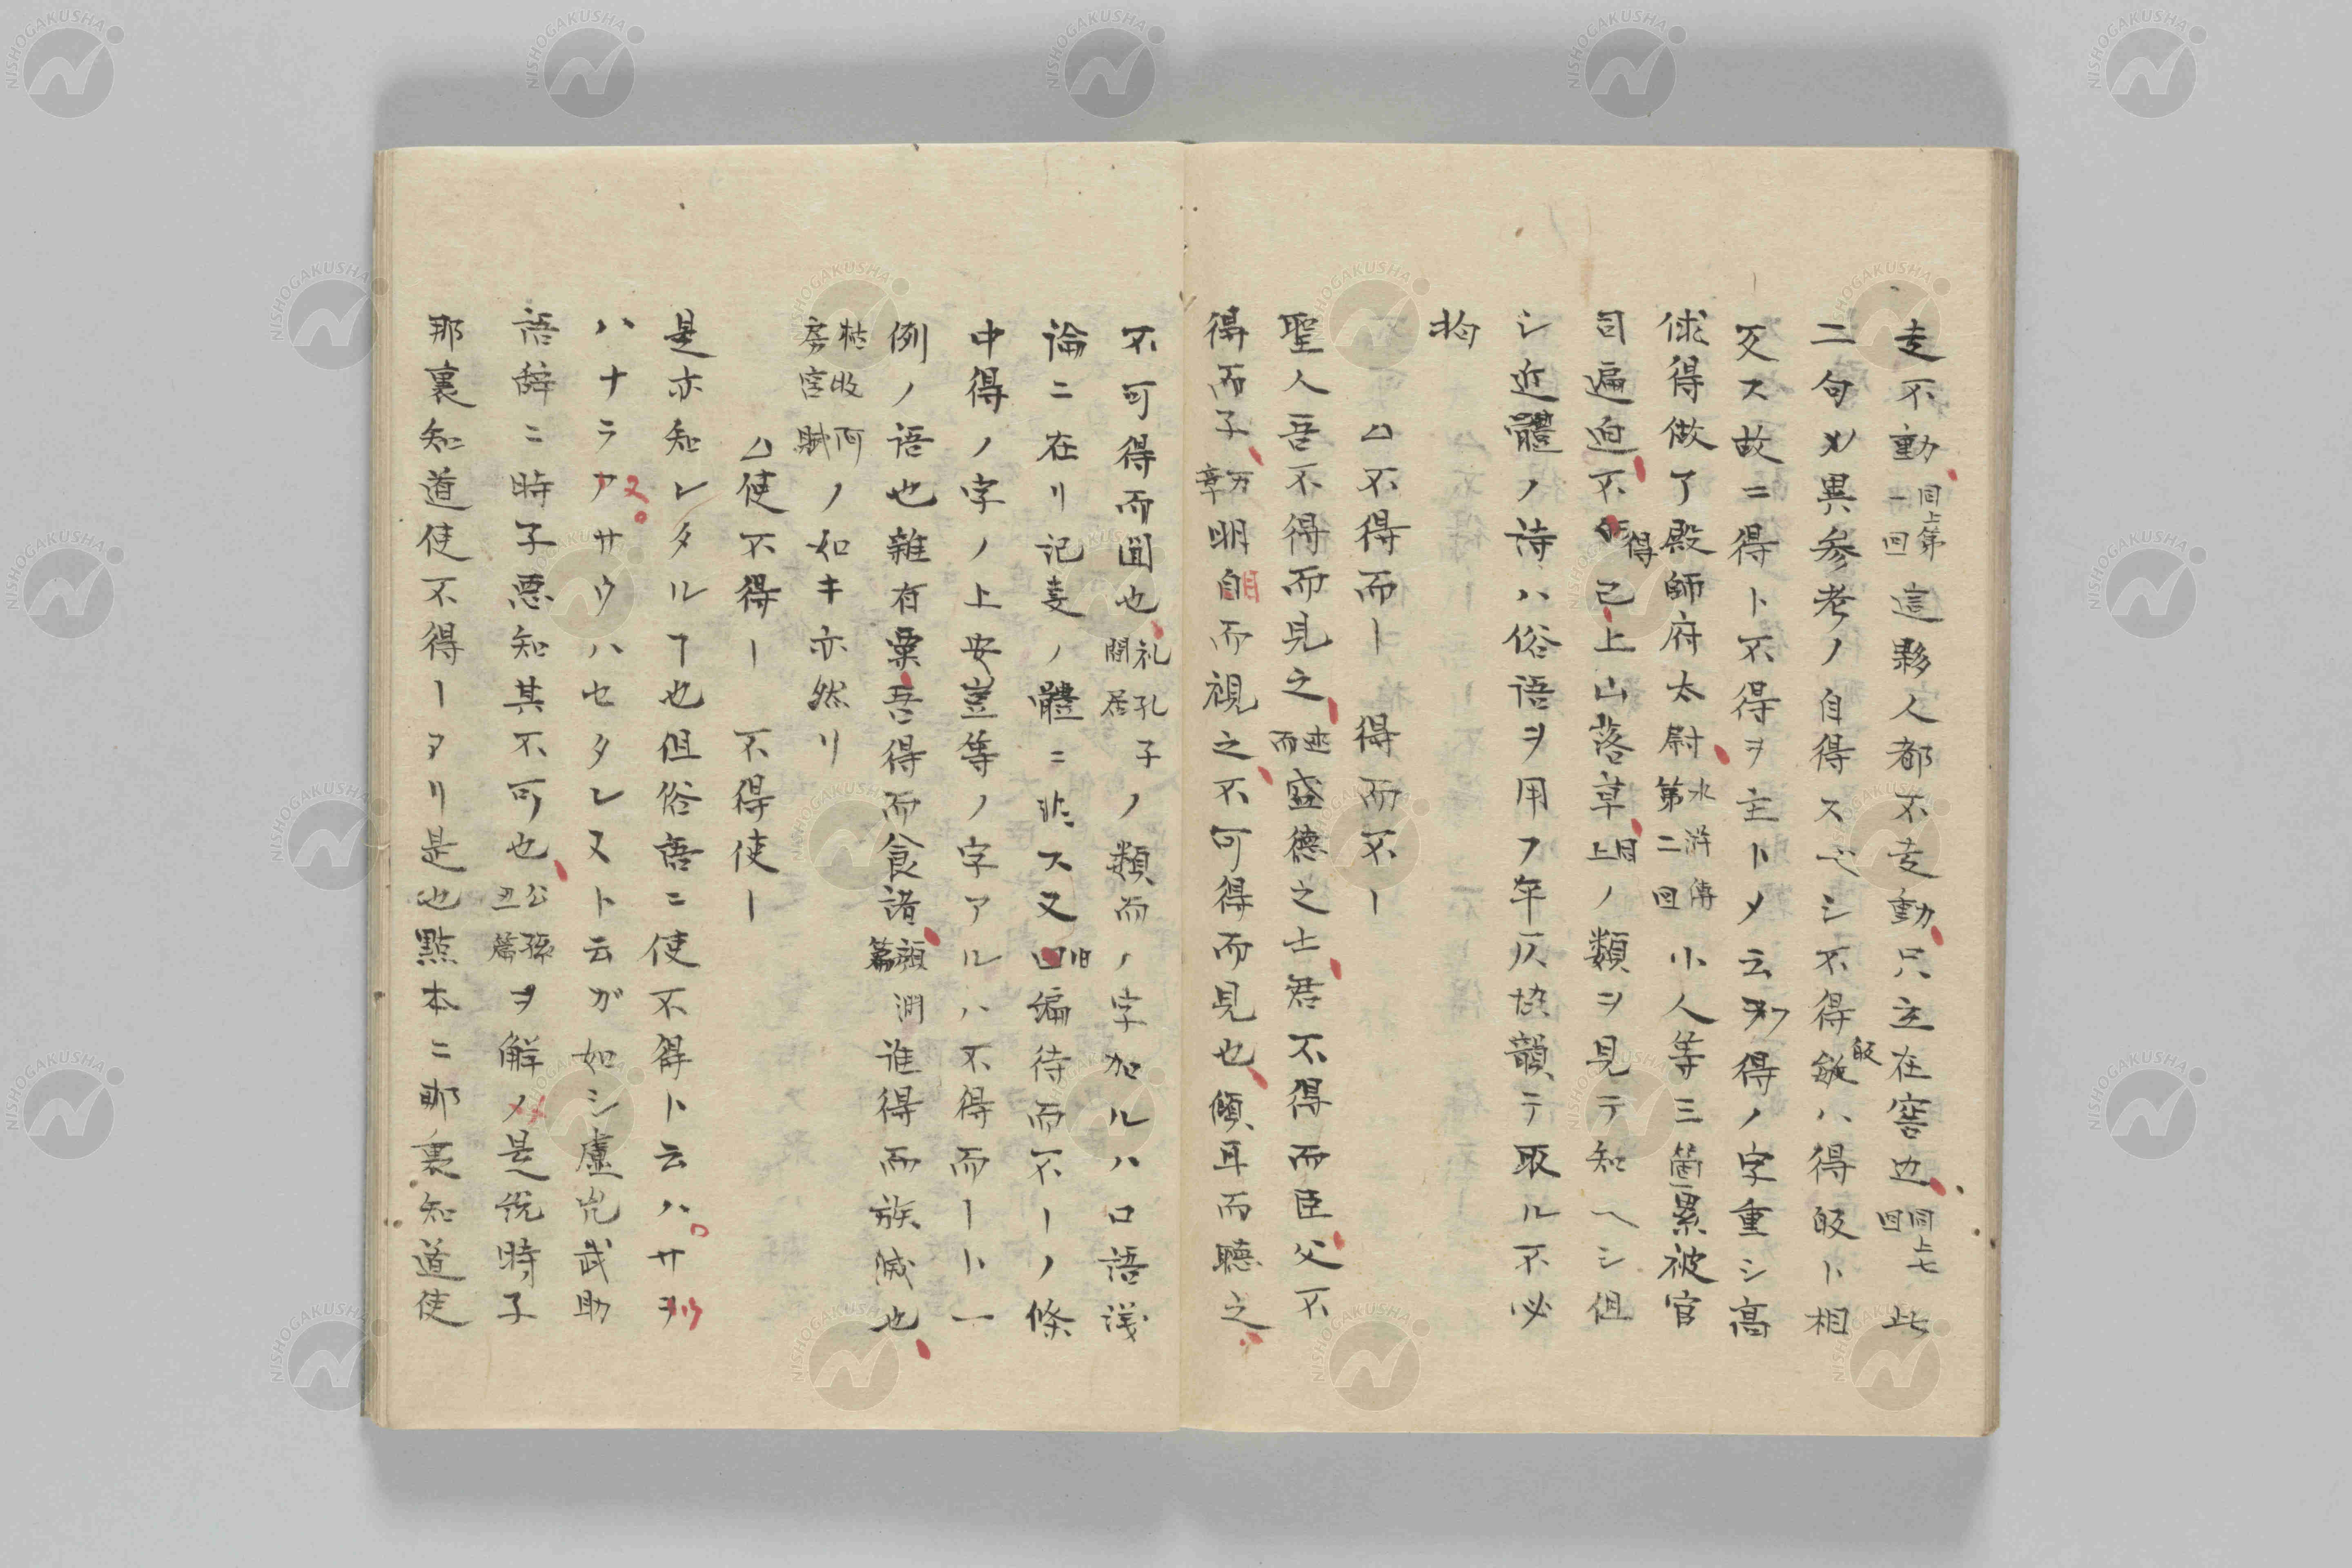 走不動同上第一回這夥人都不走動只立在窖边同上七回此
二句メ異参考ノ自得スベシ不得敏皈ハ得皈ト相
反ス故ニ得ト不得ヲ主トメ云得ノ字重シ高
俅得做了殿師府太尉水滸傳第二回小人等三箇累被官
司逼迫不得已上山落草同上ノ類ヲ見テ知ヘシ但
シ近體ノ詩ハ俗語ヲ用フ年仄協韻テ取ル不必
拘
△不得而ー 得而不ー
聖人吾不得而見之述而盛德之士君不得而臣父不
得而子万章明目而視之不可得而見也傾耳而聽之
不可得而聞也礼孔子間居ノ類而ノ字加ルハ口語浅
論ニ在リ記叓ノ體ニ非ス又旧編待而不ーノ條
中得ノ字ノ上安豈等ノ字アルハ不得而ート一
例ノ语也雖有粟吾得而食諸顔淵篇誰得而族滅也
杜牧阿房宮賦ノ如キ亦然リ
△使不得ー 不得使ー
是亦知レタルヿ也但俗語ニ使不得ト云ハサヲ
ハナラアサウハセタレ又ト云ガ如シ虚兇武助
語辞ニ時子悪知其不可也公孫丑篇ヲ解メ是说時子
那裏知道使不得ーアリ是也點本ニ那裏知道使